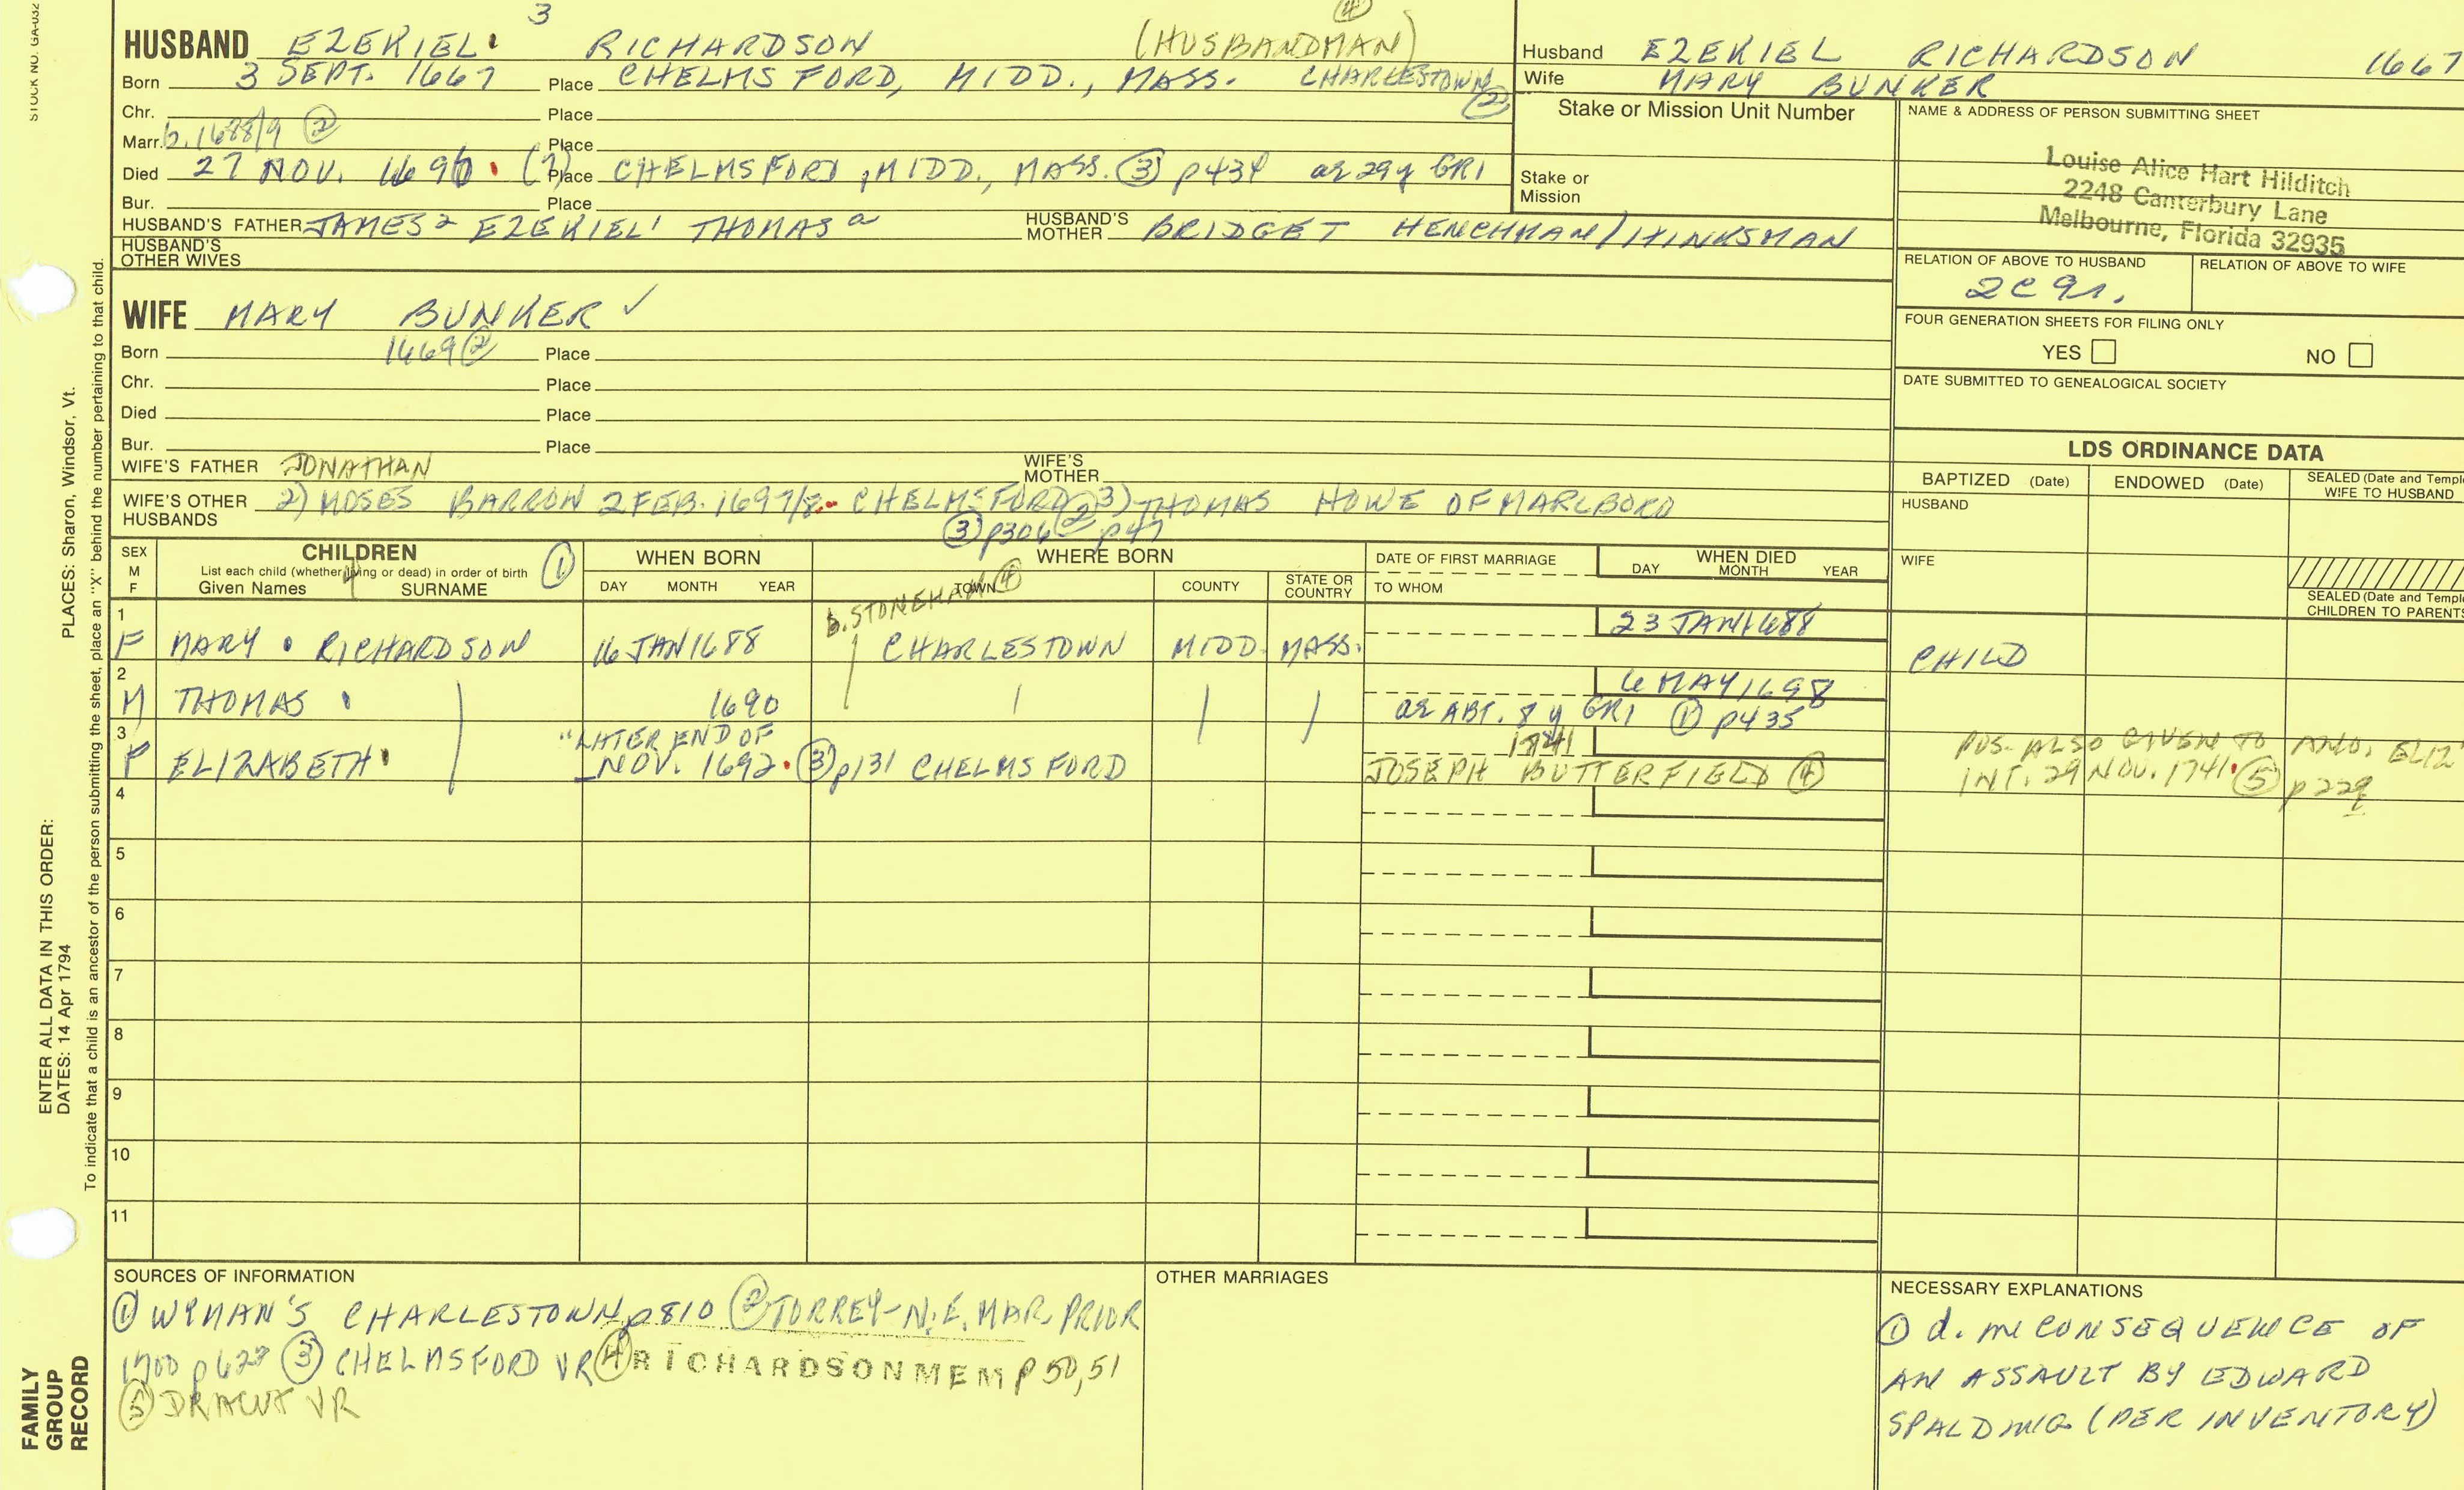 STOCK NO. GA-032
3
HUSBAND EZEKIEL RICHARDSON (HUSBANDMAN) (4)
Born 3 SEPT. 1667 Place CHELMSFORD, MIDD., MASS. CHARLESTOWN (2)
Chr. Place
Marr. b. 1688/9 (2) Place
Died 27 NOV. 1696 (1) Place CHELMSFORD, MIDD., MASS. (3) p434 ae 29y GR1
Bur. Place
HUSBAND'S FATHER JAMES2 EZEKIEL1 THOMASa HUSBAND'S MOTHER BRIDGET HENCHMAN/HINKSMAN
HUSBAND'S OTHER WIVES
WIFE MARY BUNKER ✓
Born 1669 (2) Place
Chr. Place
Died Place
Bur. Place
WIFE'S FATHER JONATHAN WIFE'S MOTHER
WIFE'S OTHER HUSBANDS 2) MOSES BARRON 2 FEB. 1697/8 CHELMSFORD (2) 3) THOMAS HOWE OF MARLBORO
(3) p306 p47
Husband EZEKIEL RICHARDSON 1667
Wife MARY BUNKER
Stake or Mission Unit Number
Stake or Mission
NAME & ADDRESS OF PERSON SUBMITTING SHEET
Louise Alice Hart Hilditch
2248 Canterbury Lane
Melbourne, Florida 32935
RELATION OF ABOVE TO HUSBAND RELATION OF ABOVE TO WIFE
2C 9r.
FOUR GENERATION SHEETS FOR FILING ONLY
YES NO
DATE SUBMITTED TO GENEALOGICAL SOCIETY
LDS ORDINANCE DATA
BAPTIZED (Date) ENDOWED (Date) SEALED (Date and Templ WIFE TO HUSBAND
HUSBAND
WIFE
SEALED (Date and Templ CHILDREN TO PARENTS
SEX M F
CHILDREN (1)
List each child (whether living or dead) in order of birth
Given Names 4 SURNAME
WHEN BORN
DAY MONTH YEAR
WHERE BORN
TOWN COUNTY STATE OR COUNTRY
b. STONEHAM (4)
DATE OF FIRST MARRIAGE
TO WHOM
WHEN DIED
DAY MONTH YEAR
1 23 JAN 1688
F MARY RICHARDSON 16 JAN 1688 CHARLESTOWN MIDD. MASS. CHILD
2 6 MAY 1698
M THOMAS 1690 ae ABT. 8 y GR1 (1) p435
3 "LATER END OF 1741
F ELIZABETH NOV. 1692 (3) p131 CHELMSFORD JOSEPH BUTTERFIELD (4)
POS. ALSO GIVEN TO ELIZ
INT. 29 NOV. 1741 (5) p229
4
5
6
7
8
9
10
11
SOURCES OF INFORMATION
(1) WYMAN'S CHARLESTOWN p810 (2) TORREY-N.E. MAR. PRIOR
1700 p627 (3) CHELMSFORD VR (4) RICHARDSON MEM p 50,51
(5) DRACUT VR
OTHER MARRIAGES
NECESSARY EXPLANATIONS
(1) d. in CONSEQUENCE OF
AN ASSAULT BY EDWARD
SPALDING (PER INVENTORY)
PLACES: Sharon, Windsor, Vt.
ENTER ALL DATA IN THIS ORDER:
DATES: 14 Apr 1794
To indicate that a child is an ancestor of the person submitting the sheet, place an "X" behind the number pertaining to that child.
FAMILY
GROUP
RECORD